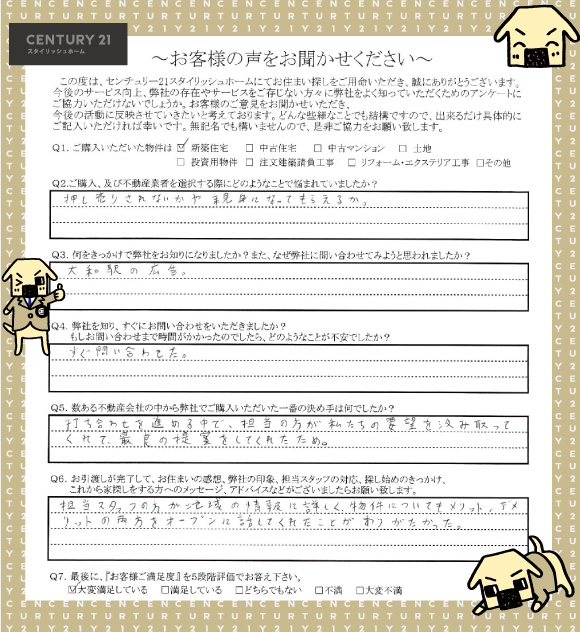 CENTURY 21
スタイリッシュホーム
～お客様の声をお聞かせください～
この度は、センチュリー21スタイリッシュホームにてお住まい探しをご用命いただき、誠にありがとうございます。
今後のサービス向上、弊社の存在やサービスをご存じない方々に弊社をよく知っていただくためのアンケートに
ご協力いただけないでしょうか。お客様のご意見をお聞かせいただき、
今後の活動に反映させていきたいと考えております。どんな些細なことでも結構ですので、出来るだけ具体的に
ご記入いただければ幸いです。無記名でも構いませんので、是非ご協力をお願い致します。
Q1. ご購入いただいた物件は ☑ 新築住宅 □ 中古住宅 □ 中古マンション □ 土地
□ 投資用物件 □ 注文建築請負工事 □ リフォーム・エクステリア工事 □その他
Q2.ご購入、及び不動産業者を選択する際にどのようなことで悩まれていましたか？
押し売りされないかや親身になってもらえるか。
Q3. 何をきっかけで弊社をお知りになりましたか？また、なぜ弊社に問い合わせてみようと思われましたか？
大和駅の広告。
Q4. 弊社を知り、すぐにお問い合わせをいただきましたか？
もしお問い合わせまで時間がかかったのでしたら、どのようなことが不安でしたか？
すぐ問い合わせた。
Q5. 数ある不動産会社の中から弊社でご購入いただいた一番の決め手は何でしたか？
打ち合わせを進める中で、担当の方が私たちの要望を汲み取って
くれて、最良の提案をしてくれたため。
Q6. お引渡しが完了して、お住まいの感想、弊社の印象、担当スタッフの対応、探し始めのきっかけ、
これから家探しをする方へのメッセージ、アドバイスなどがございましたらお願い致します。
担当スタッフの方が地域の情報に詳しく、物件についてもメリット、デメ
リットの両方をオープンに話してくれたことがありがたかった。
Q7. 最後に、『お客様ご満足度』を5段階評価でお答え下さい。
☑大変満足している □満足している □どちらでもない □不満 □大変不満